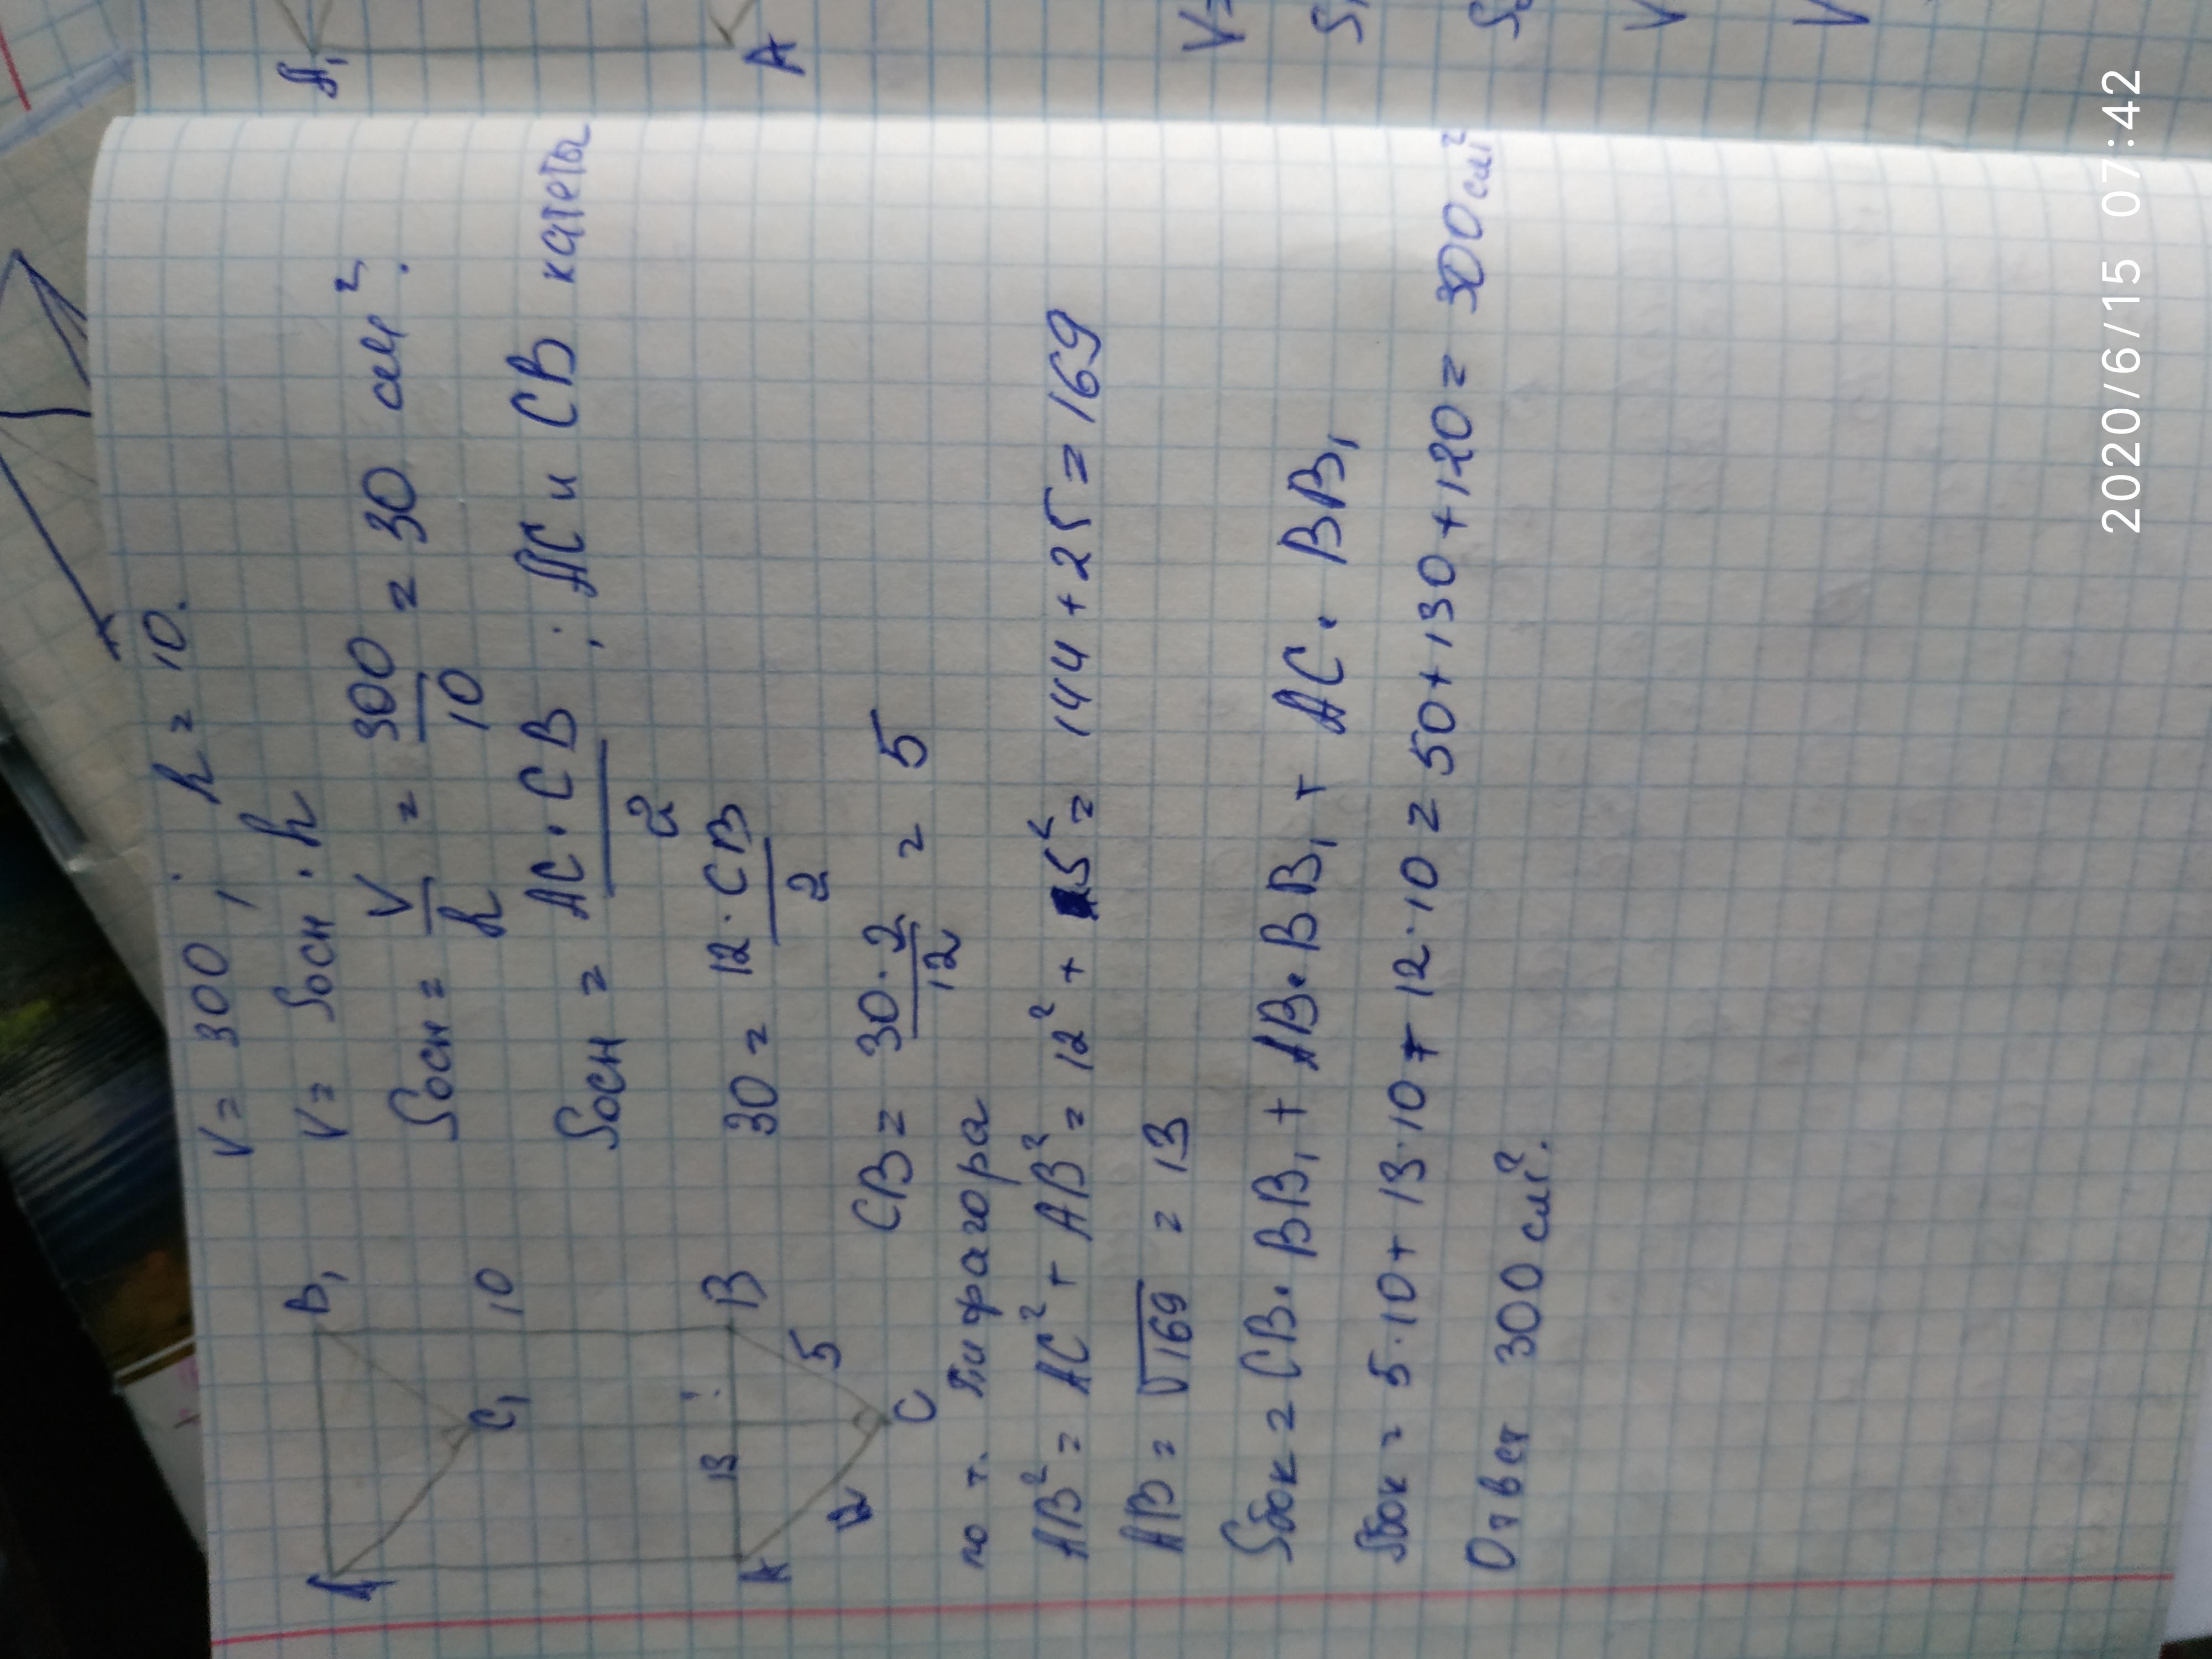 V = 300 ; h = 10.
V = Sосн · h
Sосн = V/h = 300/10 = 30 см².
Sосн = AC · CB/2 ; AC и CB катеты
30 = 12 · CB/2
CB = 30 · 2/12 = 5
A
B₁
C₁
10
13
!
A
B
12
5
C
по т. Пифагора
AB² = AC² + AB² = 12² + 5² = 144 + 25 = 169
AB = √169 = 13
Sбок = CB · BB₁ + AB · BB₁ + AC · BB₁
Sбок = 5 · 10 + 13 · 10 + 12 · 10 = 50 + 130 + 120 = 300 см²
Ответ 300 см².
A₁
A
V =
S
S
V
V
2020/6/15 07:42